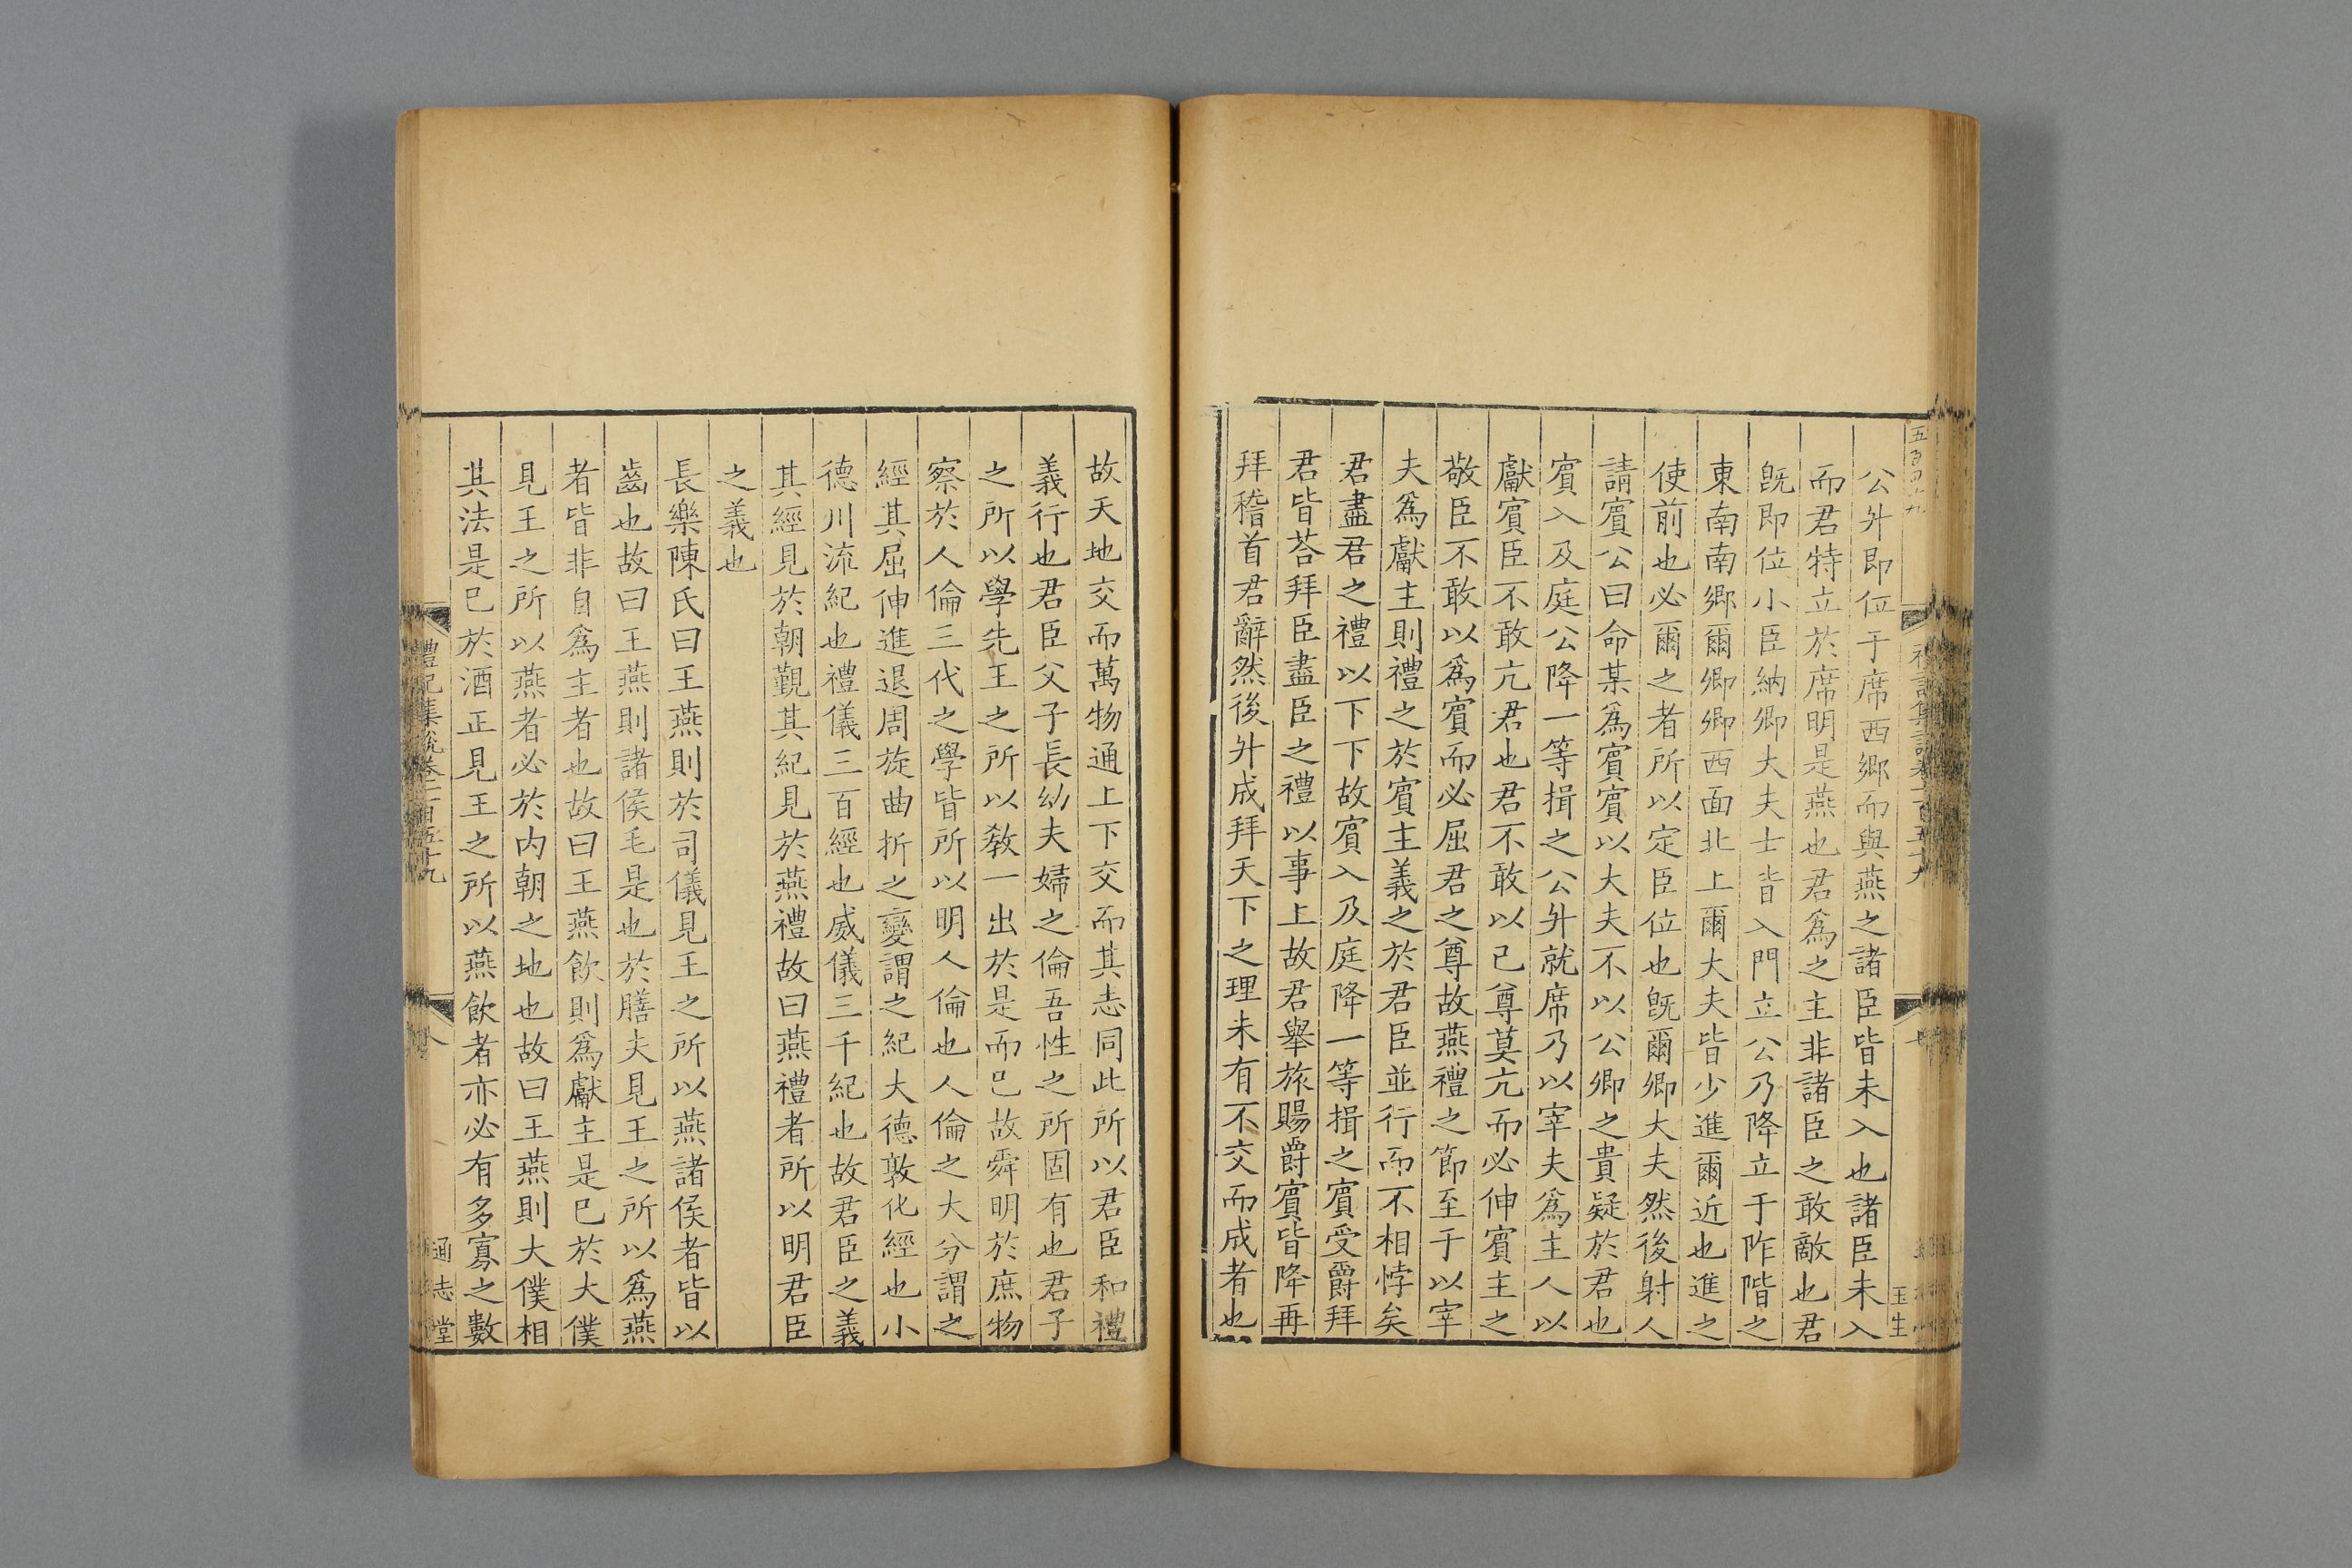 公升即位于席西鄉而與燕之諸臣皆未入也諸臣未入
而君特立於席明是燕也君爲之主非諸臣之敢敵也君
旣即位小臣納卿大夫士皆入門立公乃降立于阼階之
東南南鄉爾卿卿西面北上爾大夫皆少進爾近也進之
使前也必爾之者所以定臣位也旣爾卿大夫然後射人
請賓公曰命某爲賓賓以大夫不以公卿之貴疑於君也
賓入及庭公降一等揖之公升就席乃以宰夫爲主人以
獻賓臣不敢亢君也君不敢以己尊莫亢而必伸賓主之
敬臣不敢以爲賓而必屈君之尊故燕禮之節至于以宰
夫爲獻主則禮之於賓主義之於君臣並行而不相悖矣
君盡君之禮以下下故賓入及庭降一等揖之賓受爵拜
君皆荅拜臣盡臣之禮以事上故君舉旅賜爵賓皆降再
拜稽首君辭然後升成拜天下之理未有不交而成者也
玉生
故天地交而萬物通上下交而其志同此所以君臣和禮
義行也君臣父子長幼夫婦之倫吾性之所固有也君子
之所以學先王之所以教一出於是而已故舜明於庶物
察於人倫三代之學皆所以明人倫也人倫之大分謂之
經其屈伸進退周旋曲折之變謂之紀大德敦化經也小
德川流紀也禮儀三百經也威儀三千紀也故君臣之義
其經見於朝覲其紀見於燕禮故曰燕禮者所以明君臣
之義也
長樂陳氏曰王燕則於司儀見王之所以燕諸侯者皆以
齒也故曰王燕則諸侯毛是也於膳夫見王之所以爲燕
者皆非自爲主者也故曰王燕飲則爲獻主是已於大僕
見王之所以燕者必於內朝之地也故曰王燕則大僕相
其法是已於酒正見王之所以燕飲者亦必有多寡之數
禮記集說卷一百五十九
八
通志堂